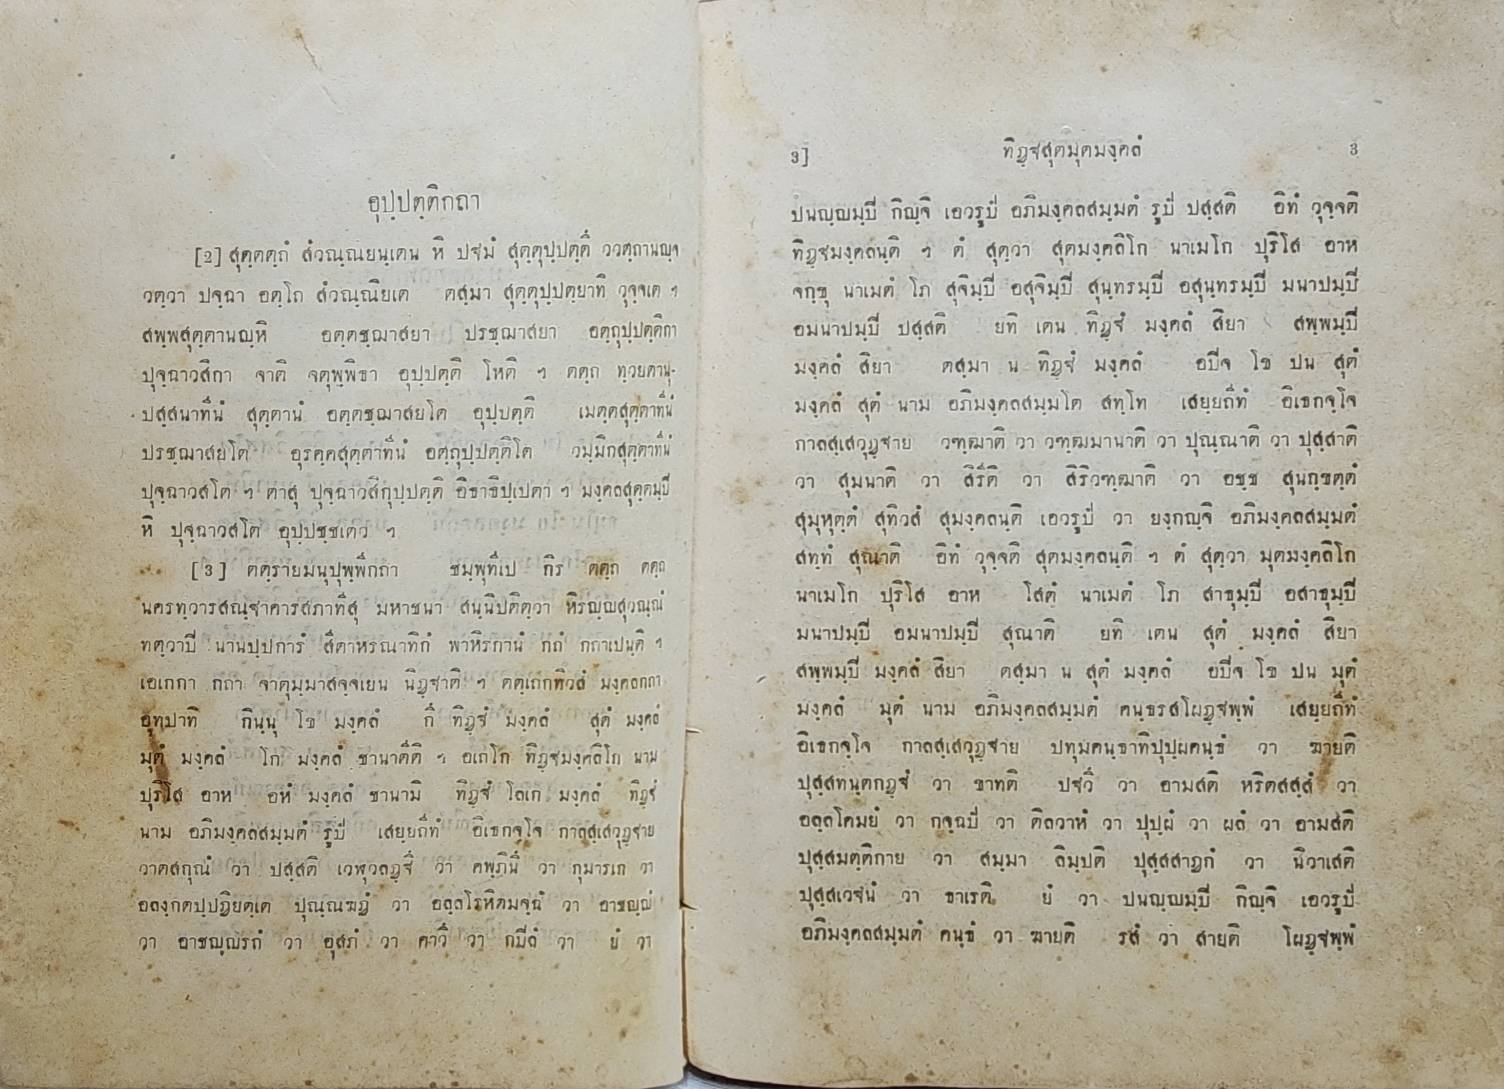 อุปฺปตฺติกถา
[2] สุตฺตตฺถํ สํวณฺณยนฺเตน หิ ปฐมํ สุตฺตุปฺปตฺตึ ววตฺถานญฺจ
วตฺวา ปจฺฉา อตฺโถ สํวณฺณิยเต ตสฺมา สุตฺตุปฺปตฺยาทิ วุจฺจเต ฯ
สพฺพสุตฺตานญฺหิ อตฺตชฺฌาสยา ปรชฺฌาสยา อตฺถุปฺปตฺติกา
ปุจฺฉาวสิกา จาติ จตุพฺพิธา อุปฺปตฺติ โหติ ฯ ตตฺถ ทฺวยตานุ-
ปสฺสนาทีนํ สุตฺตานํ อตฺตชฺฌาสยโต อุปฺปตฺติ เมตฺตสุตฺตาทีนํ
ปรชฺฌาสยโต อุรคฺคสุตฺตาทีนํ อตฺถุปฺปตฺติโต วมฺมิกสุตฺตาทีนํ
ปุจฺฉาวสโต ฯ ตาสุ ปุจฺฉาวสิกุปฺปตฺติ อิธาธิปฺเปตา ฯ มงฺคลสุตฺตมฺปิ
หิ ปุจฺฉาวสโต อุปฺปชฺชเตว ฯ
[3] ตตฺรายมนุปุพฺพิกถา ชมฺพุทีเป กิร ตตฺถ ตตฺถ
นครทฺวารสณฺฐาคารสภาทีสุ มหาชนา สนฺนิปติตฺวา หิรญฺญสุวณฺณํ
ทตฺวาปิ นานปฺปการํ สีตาหรณาทิกํ พาหิรกานํ กถํ กถาเปนฺติ ฯ
เอเกกา กถา จาตุมฺมาสจฺจเยน นิฏฺฐาติ ฯ ตตฺเถกทิวสํ มงฺคลกถา
อุทปาทิ กินฺนุ โข มงฺคลํ กึ ทิฏฺฐํ มงฺคลํ สุตํ มงฺคลํ
มุตํ มงฺคลํ โก มงฺคลํ ชานาตีติ ฯ อเถโก ทิฏฺฐมงฺคลิโก นาม
ปุริโส อาห อหํ มงฺคลํ ชานามิ ทิฏฺฐํ โลเก มงฺคลํ ทิฏฺฐํ
นาม อภิมงฺคลสมฺมตํ รูปํ เสยฺยถีทํ อิเธกจฺโจ กาลสฺเสวุฏฺฐาย
วาตสกุณํ วา ปสฺสติ เวฬุวลฏฺฐึ วา คพฺภินึ วา กุมารเก วา
อลงฺกตปฺปฏิยตฺเต ปุณฺณฆฏํ วา อลฺลโรหิตมจฺฉํ วา อาชญฺญํ
วา อาชญฺญรถํ วา อุสภํ วา คาวึ วา กปิลํ วา ยํ วา
3] ทิฏฺฐสุตมุตมงฺคลํ 3
ปนญฺญมฺปิ กิญฺจิ เอวรูปํ อภิมงฺคลสมฺมตํ รูปํ ปสฺสติ อิทํ วุจฺจติ
ทิฏฺฐมงฺคลนฺติ ฯ ตํ สุตฺวา สุตมงฺคลิโก นาเมโก ปุริโส อาห
จกฺขุ นาเมตํ โภ สุจิมฺปิ อสุจิมฺปิ สุนฺทรมฺปิ อสุนฺทรมฺปิ มนาปมฺปิ
อมนาปมฺปิ ปสฺสติ ยทิ เตน ทิฏฺฐํ มงฺคลํ สิยา สพฺพมฺปิ
มงฺคลํ สิยา ตสฺมา น ทิฏฺฐํ มงฺคลํ อปิจ โข ปน สุตํ
มงฺคลํ สุตํ นาม อภิมงฺคลสมฺมโต สทฺโท เสยฺยถีทํ อิเธกจฺโจ
กาลสฺเสวุฏฺฐาย วฑฺฒาติ วา วฑฺฒมานาติ วา ปุณฺณาติ วา ปุสฺสาติ
วา สุมนาติ วา สิรีติ วา สิริวฑฺฒาติ วา อชฺช สุนกฺขตฺตํ
สุมุหุตฺตํ สุทิวสํ สุมงฺคลนฺติ เอวรูปํ วา ยงฺกญฺจิ อภิมงฺคลสมฺมตํ
สทฺทํ สุณาติ อิทํ วุจฺจติ สุตมงฺคลนฺติ ฯ ตํ สุตฺวา มุตมงฺคลิโก
นาเมโก ปุริโส อาห โสตํ นาเมตํ โภ สาธุมฺปิ อสาธุมฺปิ
มนาปมฺปิ อมนาปมฺปิ สุณาติ ยทิ เตน สุตํ มงฺคลํ สิยา
สพฺพมฺปิ มงฺคลํ สิยา ตสฺมา น สุตํ มงฺคลํ อปิจ โข ปน มุตํ
มงฺคลํ มุตํ นาม อภิมงฺคลสมฺมตํ คนฺธรสโผฏฺฐพฺพํ เสยฺยถีทํ
อิเธกจฺโจ กาลสฺเสวุฏฺฐาย ปทุมคนฺธาทิปุปฺผคนฺธํ วา ฆายติ
ปุสฺสทนฺตกฏฺฐํ วา ขาทติ ปฐวึ วา อามสติ หริตสสฺสํ วา
อลฺลโคมยํ วา กจฺฉปํ วา ติลวาหํ วา ปุปฺผํ วา ผลํ วา อามสติ
ปุสฺสมตฺติกาย วา สมฺมา ลิมฺปติ ปุสฺสสาฏกํ วา นิวาเสติ
ปุสฺสเวฐนํ วา ธาเรติ ยํ วา ปนญฺญมฺปิ กิญฺจิ เอวรูปํ
อภิมงฺคลสมฺมตํ คนฺธํ วา ฆายติ รสํ วา สายติ โผฏฺฐพฺพํ